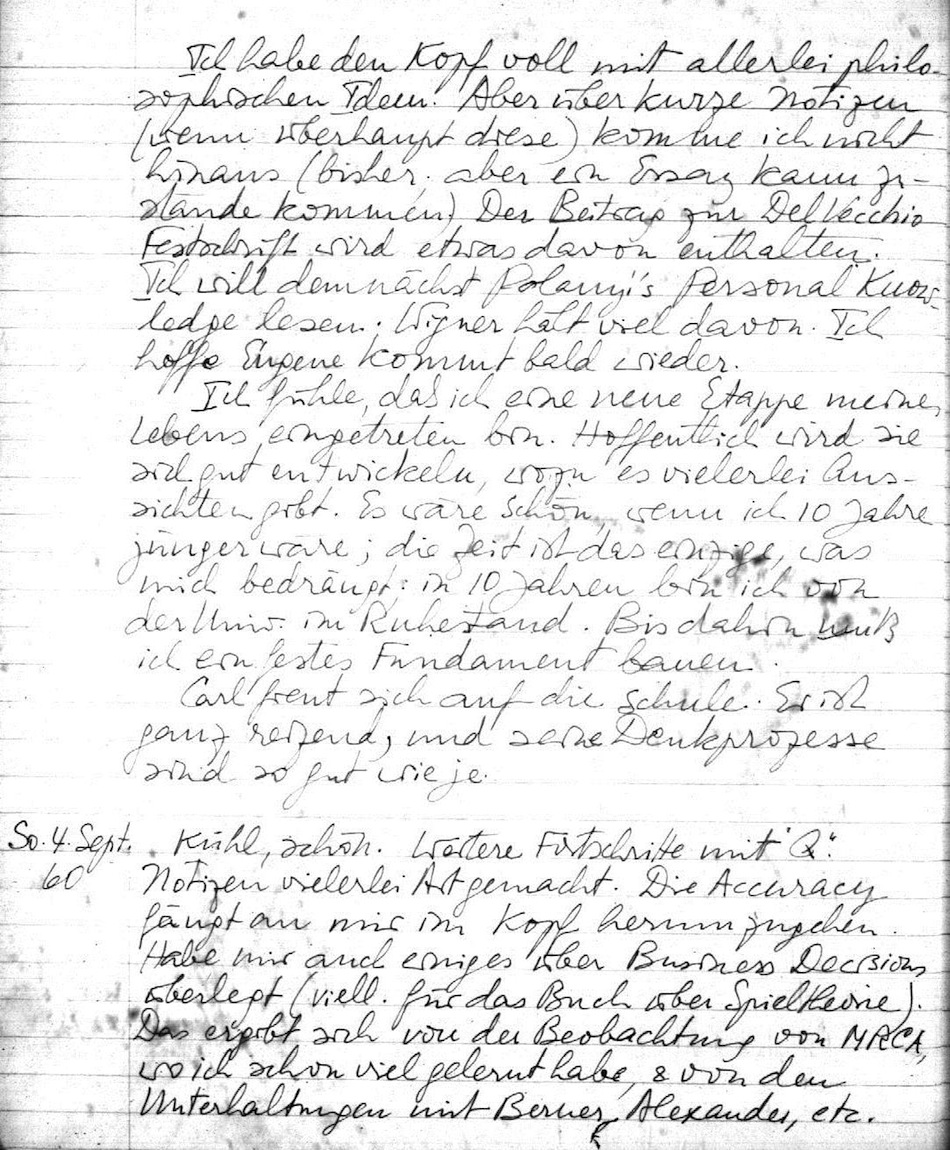 Ich habe den Kopf voll mit allerlei philo-
sophischen Ideen. Aber über kurze Notizen
(wenn überhaupt diese) komme ich nicht
hinaus (bisher; aber ein Essay kann zu-
stande kommen) Der Beitrag zur Del Vecchio
Festschrift wird etwas davon enthalten.
Ich will demnächst Polanyi's Personal Know-
ledge lesen. Wigner hält viel davon. Ich
hoffe Eugene kommt bald wieder.
Ich fühle, das ich eine neue Etappe meines
Lebens eingetreten bin. Hoffentlich wird sie
sich gut entwickeln, wozu es vielerlei Aus-
sichten gibt. Es wäre schön, wenn ich 10 Jahre
jünger wäre; die Zeit ist das einzige, was
mich bedrängt: in 10 Jahren bin ich von
der Univ. im Ruhestand. Bis dahin muß
ich ein festes Fundament bauen.
Carl freut sich auf die Schule. Er ist
ganz reizend, und seine Denkprozesse
sind so gut wie je.
So. 4. Sept. Kühl, schön. Weitere Fortschritte mit "Q".
60 Notizen vielerlei Art gemacht. Die Accuracy
fängt an mir im Kopf herumzugehen.
Habe mir auch einiges über Business Decisions
überlegt (viell. für das Buch über Spieltheorie).
Das ergibt sich von der Beobachtung von MRCA,
wo ich schon viel gelernt habe, & von den
Unterhaltungen mit Berner, Alexander, etc.